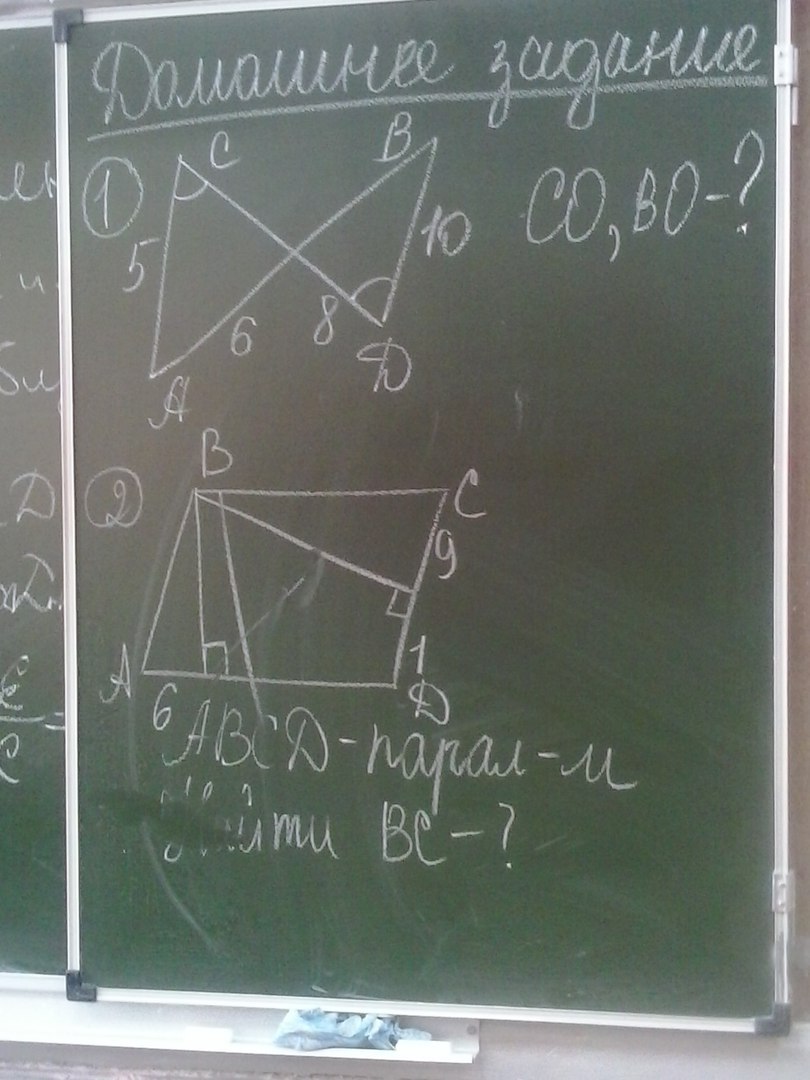 Домашнее задание
① C B CO, BO-?
5 10
6 8
A D
② B C
9
1
A 6 D
ABCD-парал-м
Найти BC-?